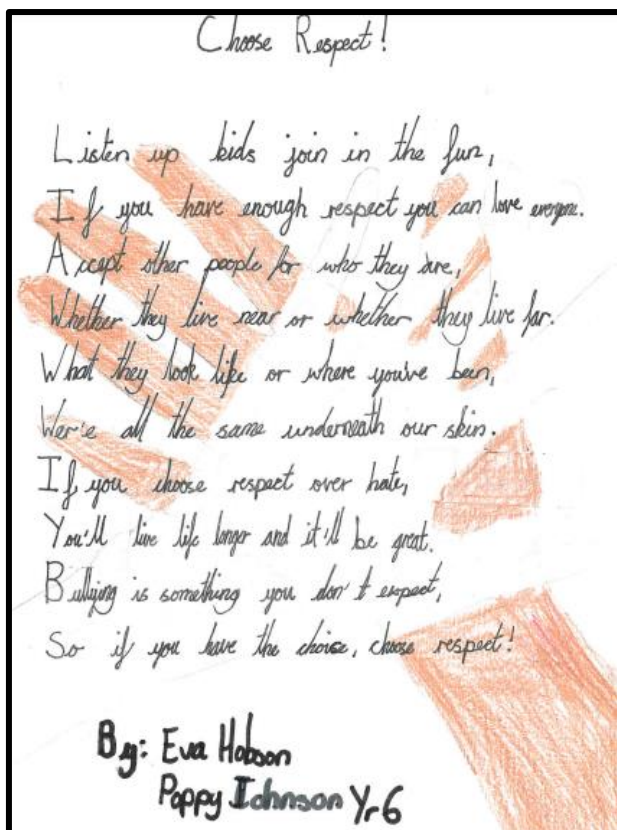 Choose Respect!
Listen up kids join in the fun,
If you have enough respect you can love everyone.
Accept other people for who they are,
Whether they live near or whether they live far.
What they look like or where you've been,
Wer'e all the same underneath our skin.
If you choose respect over hate,
You'll live life longer and it'll be great.
Bullying is something you don't expect,
So if you have the choise, choose respect!
By: Eva Hobson
Poppy Johnson Yr6